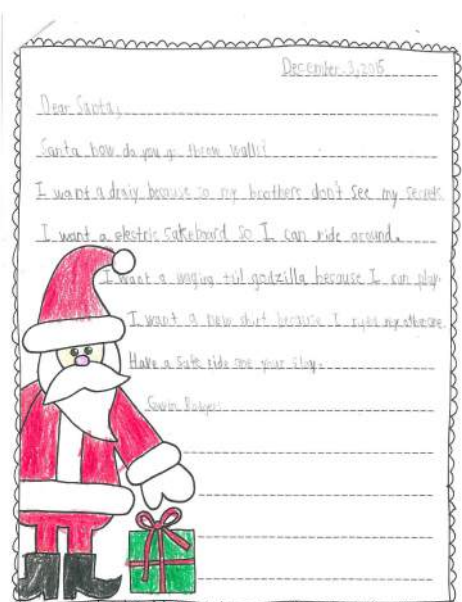 December 3, 2015
Dear Santa,
Santa how do you go throw walls?
I want a draiy because so my brothers don't see my secrets
I want a electric sakeboard so I can ride around.
I want a waging tail godzilla because I can play
I want a new shirt because I my other one
Have a safe ride one your
Gavin